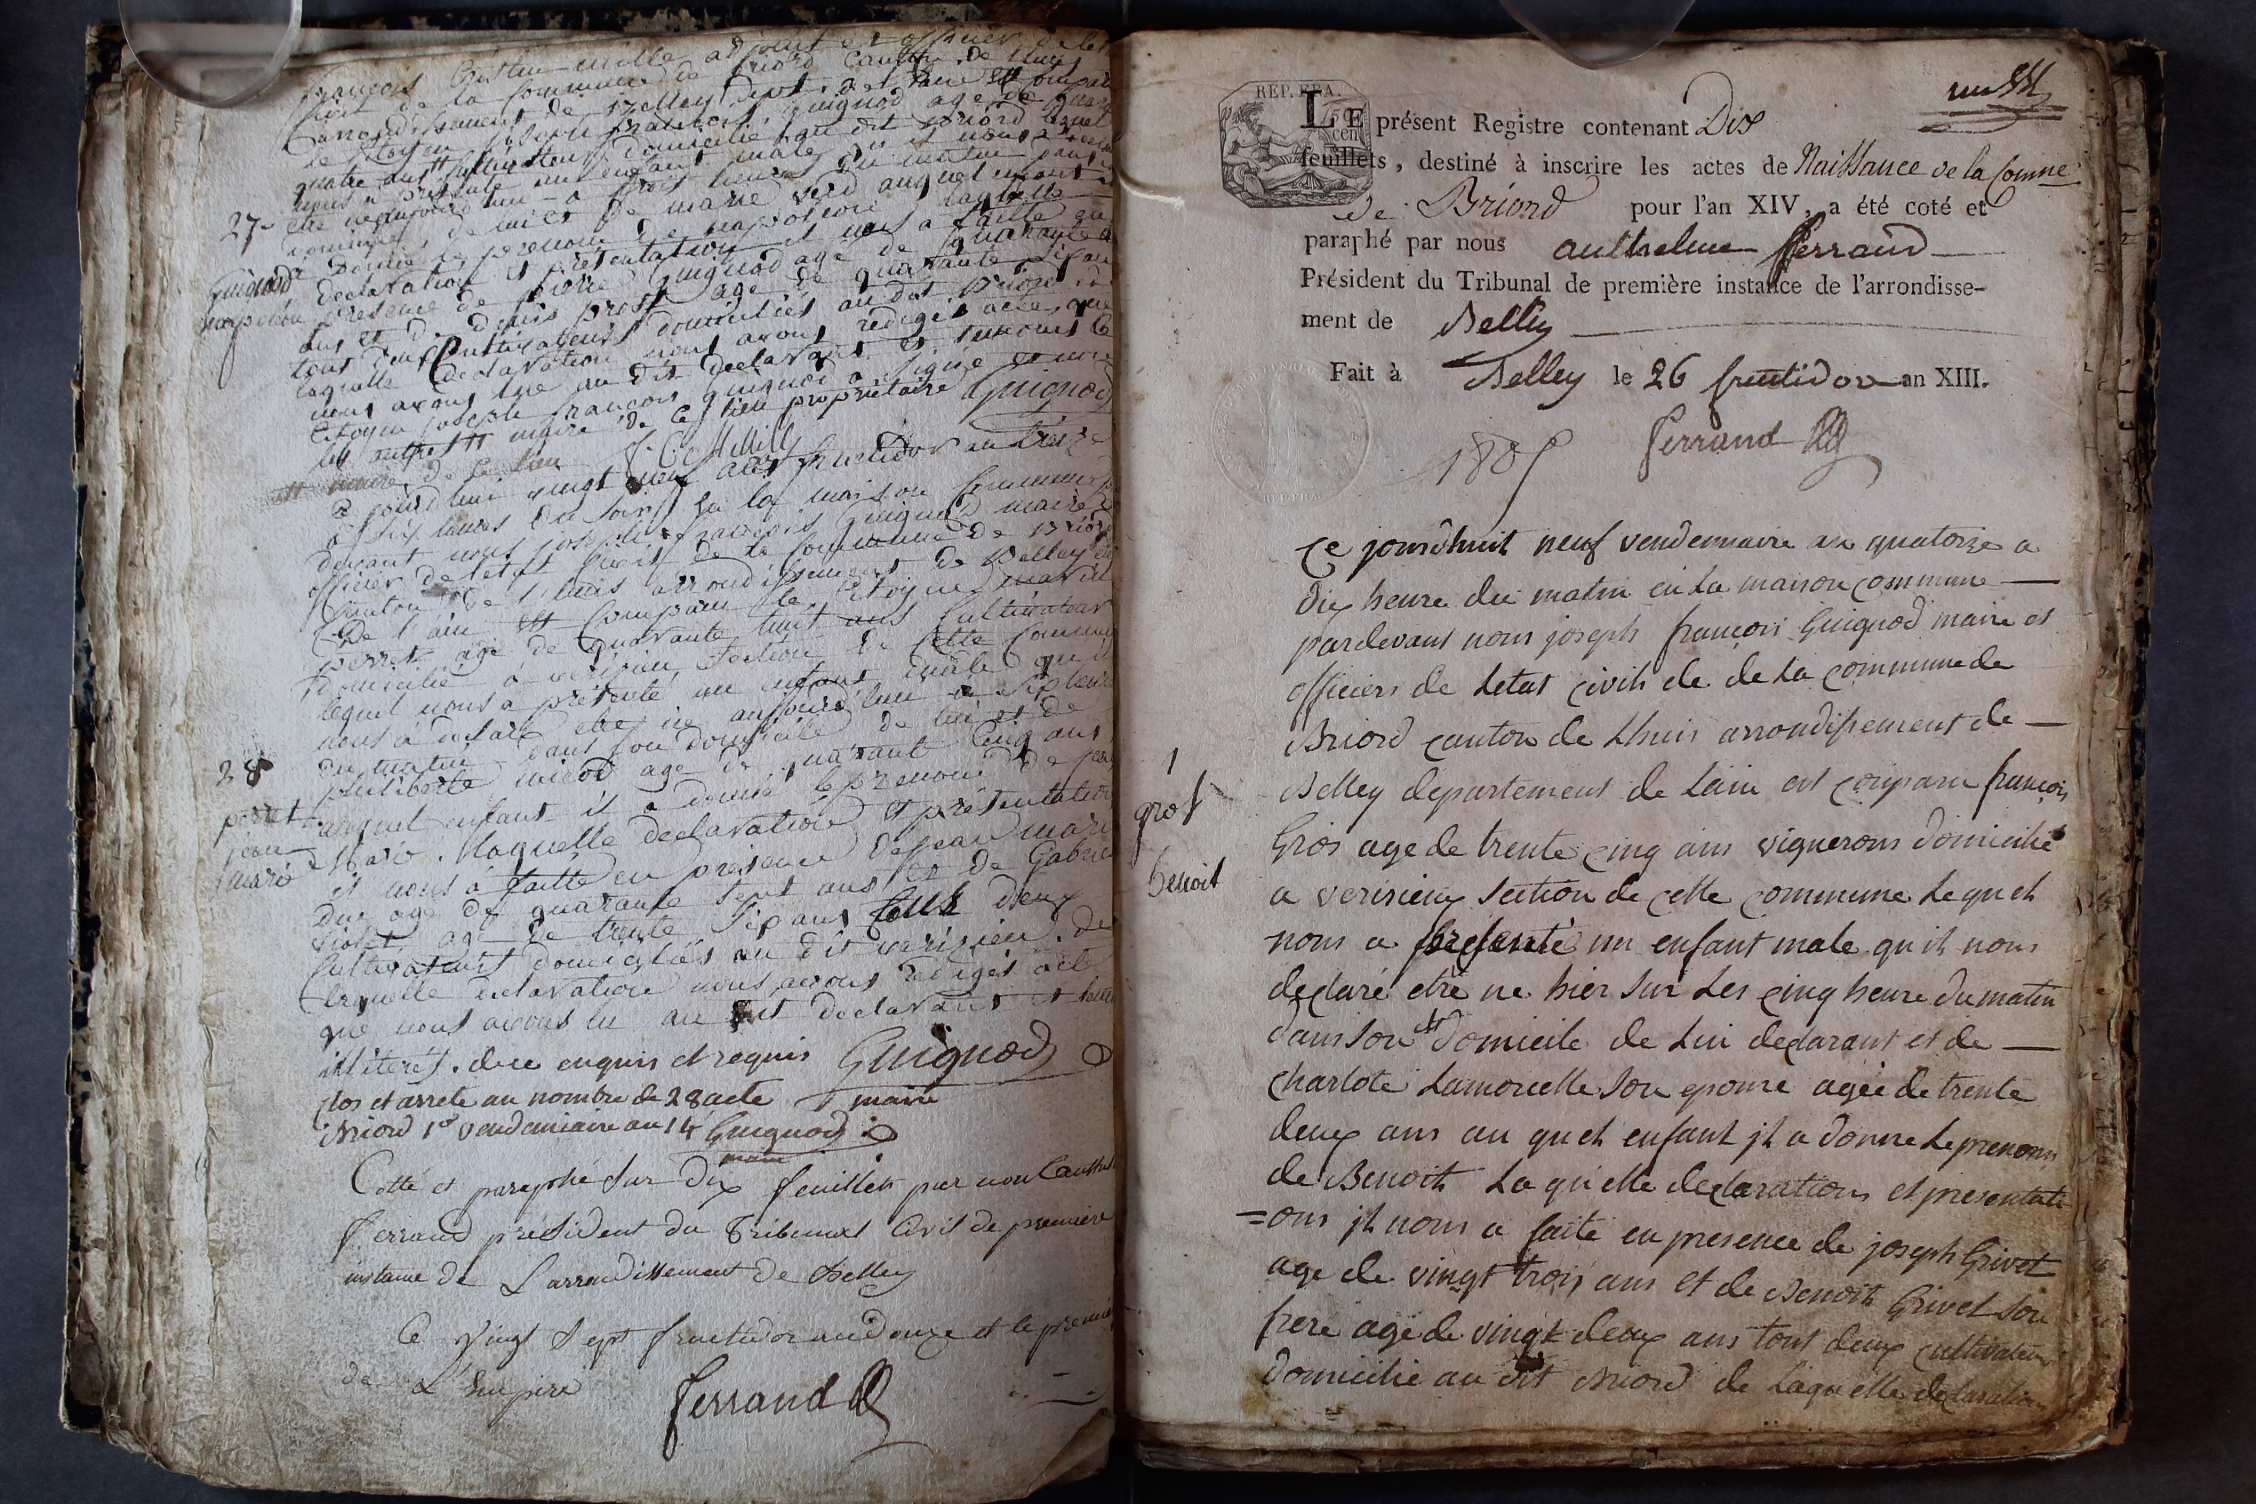 françois Cristin mille adjoint et officier de letat
Civil de la Commune de Briord Canton de Lhuis
arrondissement de Belley dept de l'ain est comparu
le Citoyen joseph françois guignod age de quarante
quatre ans Cultivateur domicilié au dit Briord lequel
nous a présenté un enfant male qu il nous a déclaré
être né aujourd'hui à trois heures du matin dans
domicile de lui et de marie auquel enfant il
27
a Donné le prenom de napoléon laquelle
Guignod
napoléon
declaration et présentation il nous a faitte en
presence de pierre Guignod age de quarante
ans et de denis prost age de quarante six ans
tous deux Cultivateurs domiciliés au dit Briord de
laquelle declaration nous avons redigés acte que
nous avons lue au dit declarant et temoins le
Citoyen joseph françois guignod a signé et non
les autres maire de ce lieu propriétaire Guignod
maire de ce lieu J. C. Mille
Ce jourd'hui vingt neuf fructidor an treize
à six heures du soir en la maison Commune par
devant nous joseph françois Guignod maire et
officier de letat civil de la Commune de Briord
Canton de Lhuis arrondissement de Belley dt
De l'ain est comparu le Citoyen
perret age de quarante huit ans Cultivateur
domicilié à verisieu Section de cette Commune
lequel nous a présenté un enfant male qu il
nous à declaré etre né aujourd'hui a sept heures
28
du matin dans son domicile de lui et de
philiberte micod age de quarante cinq ans
perret
jean
marie
auquel enfant il a donné le prenom de jean
Marie. laquelle declaration et présentation
il nous à faitte en présence de jean marie
Duc age de quarante sept ans et de Gabriel
violet age de trente six ans tous deux
Cultivateurs domiciliés au dit verisieu. de
laquelle declaration nous avons redigés acte
que nous avons lu au dit declarant et temoins
illiterés. de ce enquis et requis Guignod
Clos et arrete au nombre de 28 acte maire
Briord 1er vendemiaire an 14 Guignod
maire
Cotté et paraphé sur Dix feuillets par nous
ferrand président du Tribunal Civil de première
instance de L'arrondissement de Belley
Ce vingt sept fructidor an douze et le premier
de L'Empire
ferrand
REP. FRA.
LE présent Registre contenant Dix
feuillets, destiné à inscrire les actes de Naissance de la Comne
de Briord pour l'an XIV, a été coté et
paraphé par nous anthelme ferrand
Président du Tribunal de première instance de l'arrondisse-
ment de Belley
Fait à Belley le 26 fructidor an XIII.
1805 ferrand
Ce jourdhuit neuf vendemiaire an quatorze a
dix heure du matin en La maison commune
pardevant nous joseph françois Guignod maire et
officiers de Letat civils de de La commune de
Briord canton de Lhuis arrondissement de
1
gros
Benoit
Belley departement de Lain est comparu françois
Gros age de trente cinq ans vignerons domicilié
a verisieux section de cette commune Lequel
nous a presenté un enfant male quil nous
declaré etre ne hier sur Les cinq heure du matin
dans son dt domicile de Lui declarant et de
charlote Lamorcelle son epouse agée de trente
deux ans au quel enfant jl a donne Le prenoms
de Benoit La quelle declarations et presentati
=ons jl nous a faite en presence de joseph Grivet
age de vingt trois ans et de Benoit Grivet son
frere agé de vingt deux ans tout deux cultivateur
domicilie au dit Briord de Laquelle declaration